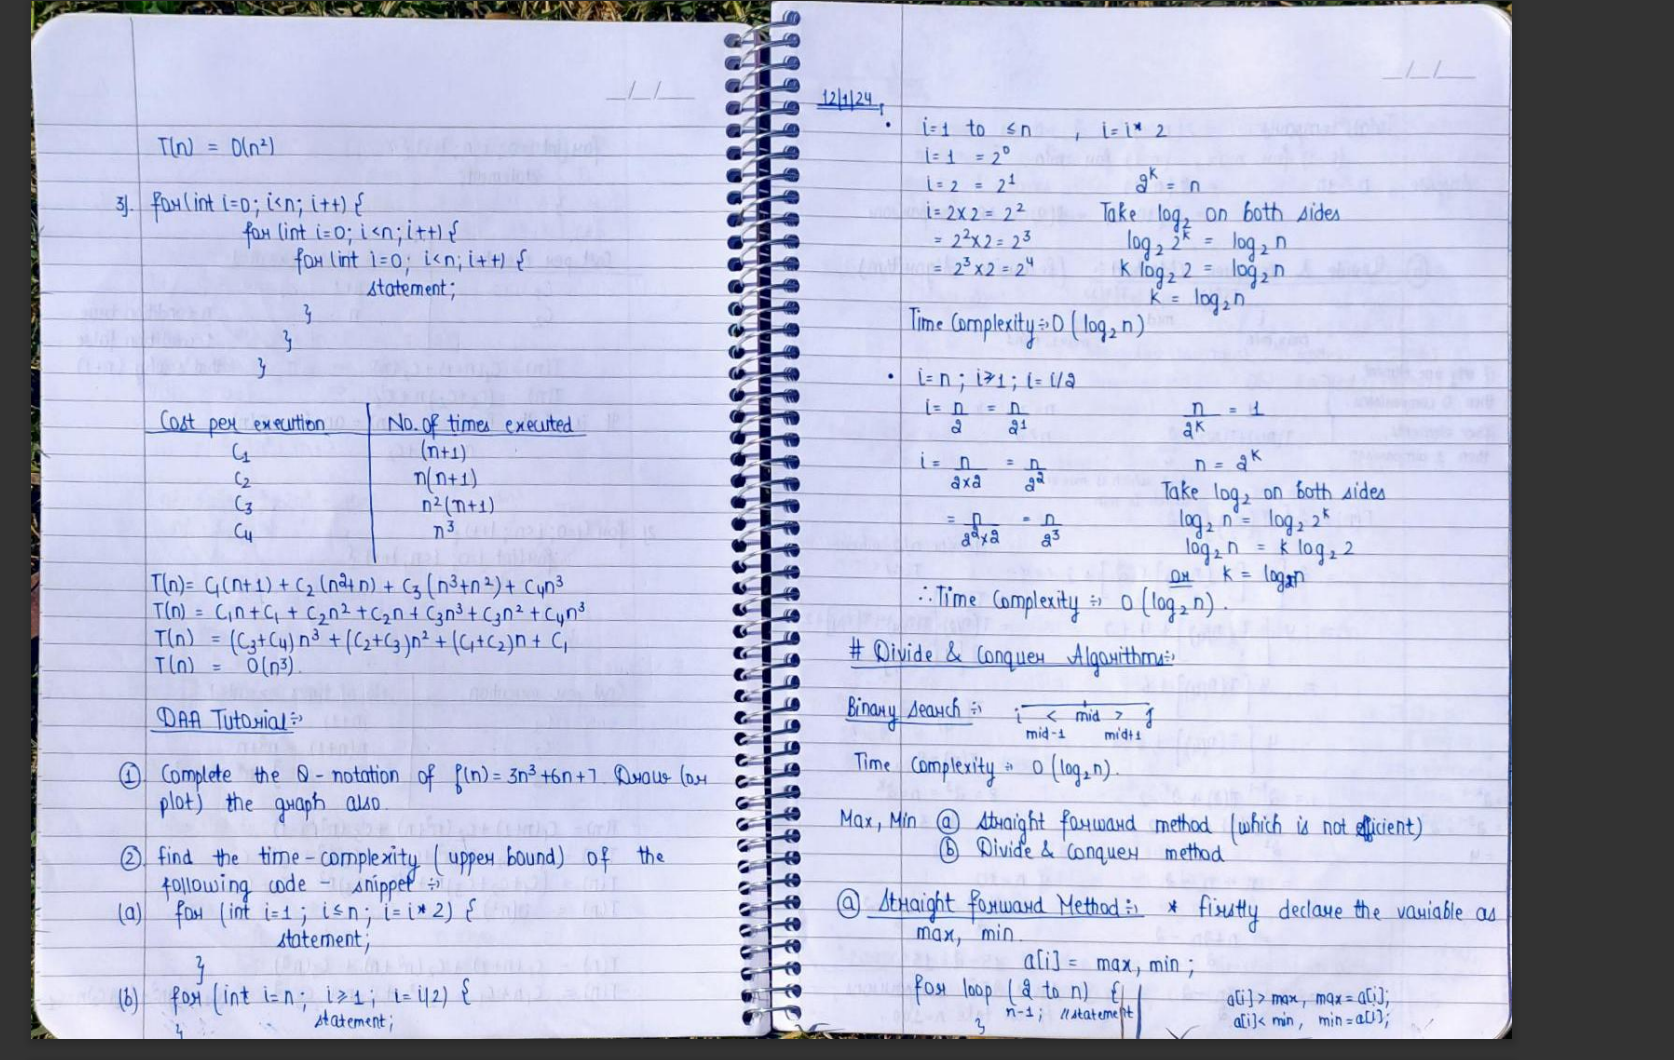 _/_/_
T(n) = O(n²)
3). for(int i=0; i<n; i++) {
for (int i=0; i<n; i++) {
for (int i=0; i<n; i++) {
statement;
}
}
}
Cost per execution | No. of times executed
C₁ | (n+1)
C₂ | n(n+1)
C₃ | n²(n+1)
C₄ | n³
T(n) = C₁(n+1) + C₂(n²+n) + C₃(n³+n²) + C₄n³
T(n) = C₁n + C₁ + C₂n² + C₂n + C₃n³ + C₃n² + C₄n³
T(n) = (C₃+C₄)n³ + (C₂+C₃)n² + (C₁+C₂)n + C₁
T(n) = O(n³).
DAA Tutorial :→
① Complete the θ-notation of f(n) = 3n³+6n+7. Draw (or
plot) the graph also.
② find the time-complexity (upper bound) of the
following code - snippet :→
(a) for (int i=1; i≤n; i=i*2) {
statement;
}
(b) for (int i=n; i≥1; i=i/2) {
statement;
}
_/_/_
12/1/24,
• i=1 to ≤n , i=i*2
i=1 = 2⁰
i=2 = 2¹ 2ᵏ = n
i=2×2 = 2² Take log₂ on both sides
= 2²×2 = 2³ log₂ 2ᵏ = log₂ n
= 2³×2 = 2⁴ k log₂ 2 = log₂ n
k = log₂ n
Time Complexity :→ O(log₂ n)
• i=n ; i≥1 ; i=i/2
i = n/2 = n/2¹ n/2ᵏ = 1
i = n/2×2 = n/2² n = 2ᵏ
Take log₂ on both sides
= n/2²×2 = n/2³ log₂ n = log₂ 2ᵏ
log₂ n = k log₂ 2
or k = log₂n
∴ Time Complexity :→ O(log₂ n).
# Divide & Conquer Algorithms :→
Binary Search :→ i < mid > j
mid-1 mid+1
Time Complexity :→ O(log₂ n).
Max, Min ⓐ Straight forward method (which is not efficient)
ⓑ Divide & Conquer method
ⓐ Straight forward Method :→ * firstly declare the variable as
max, min.
a[i] = max, min ;
for loop (2 to n) { a[i] > max, max = a[i];
n-1; //statement a[i] < min, min = a[i];
}